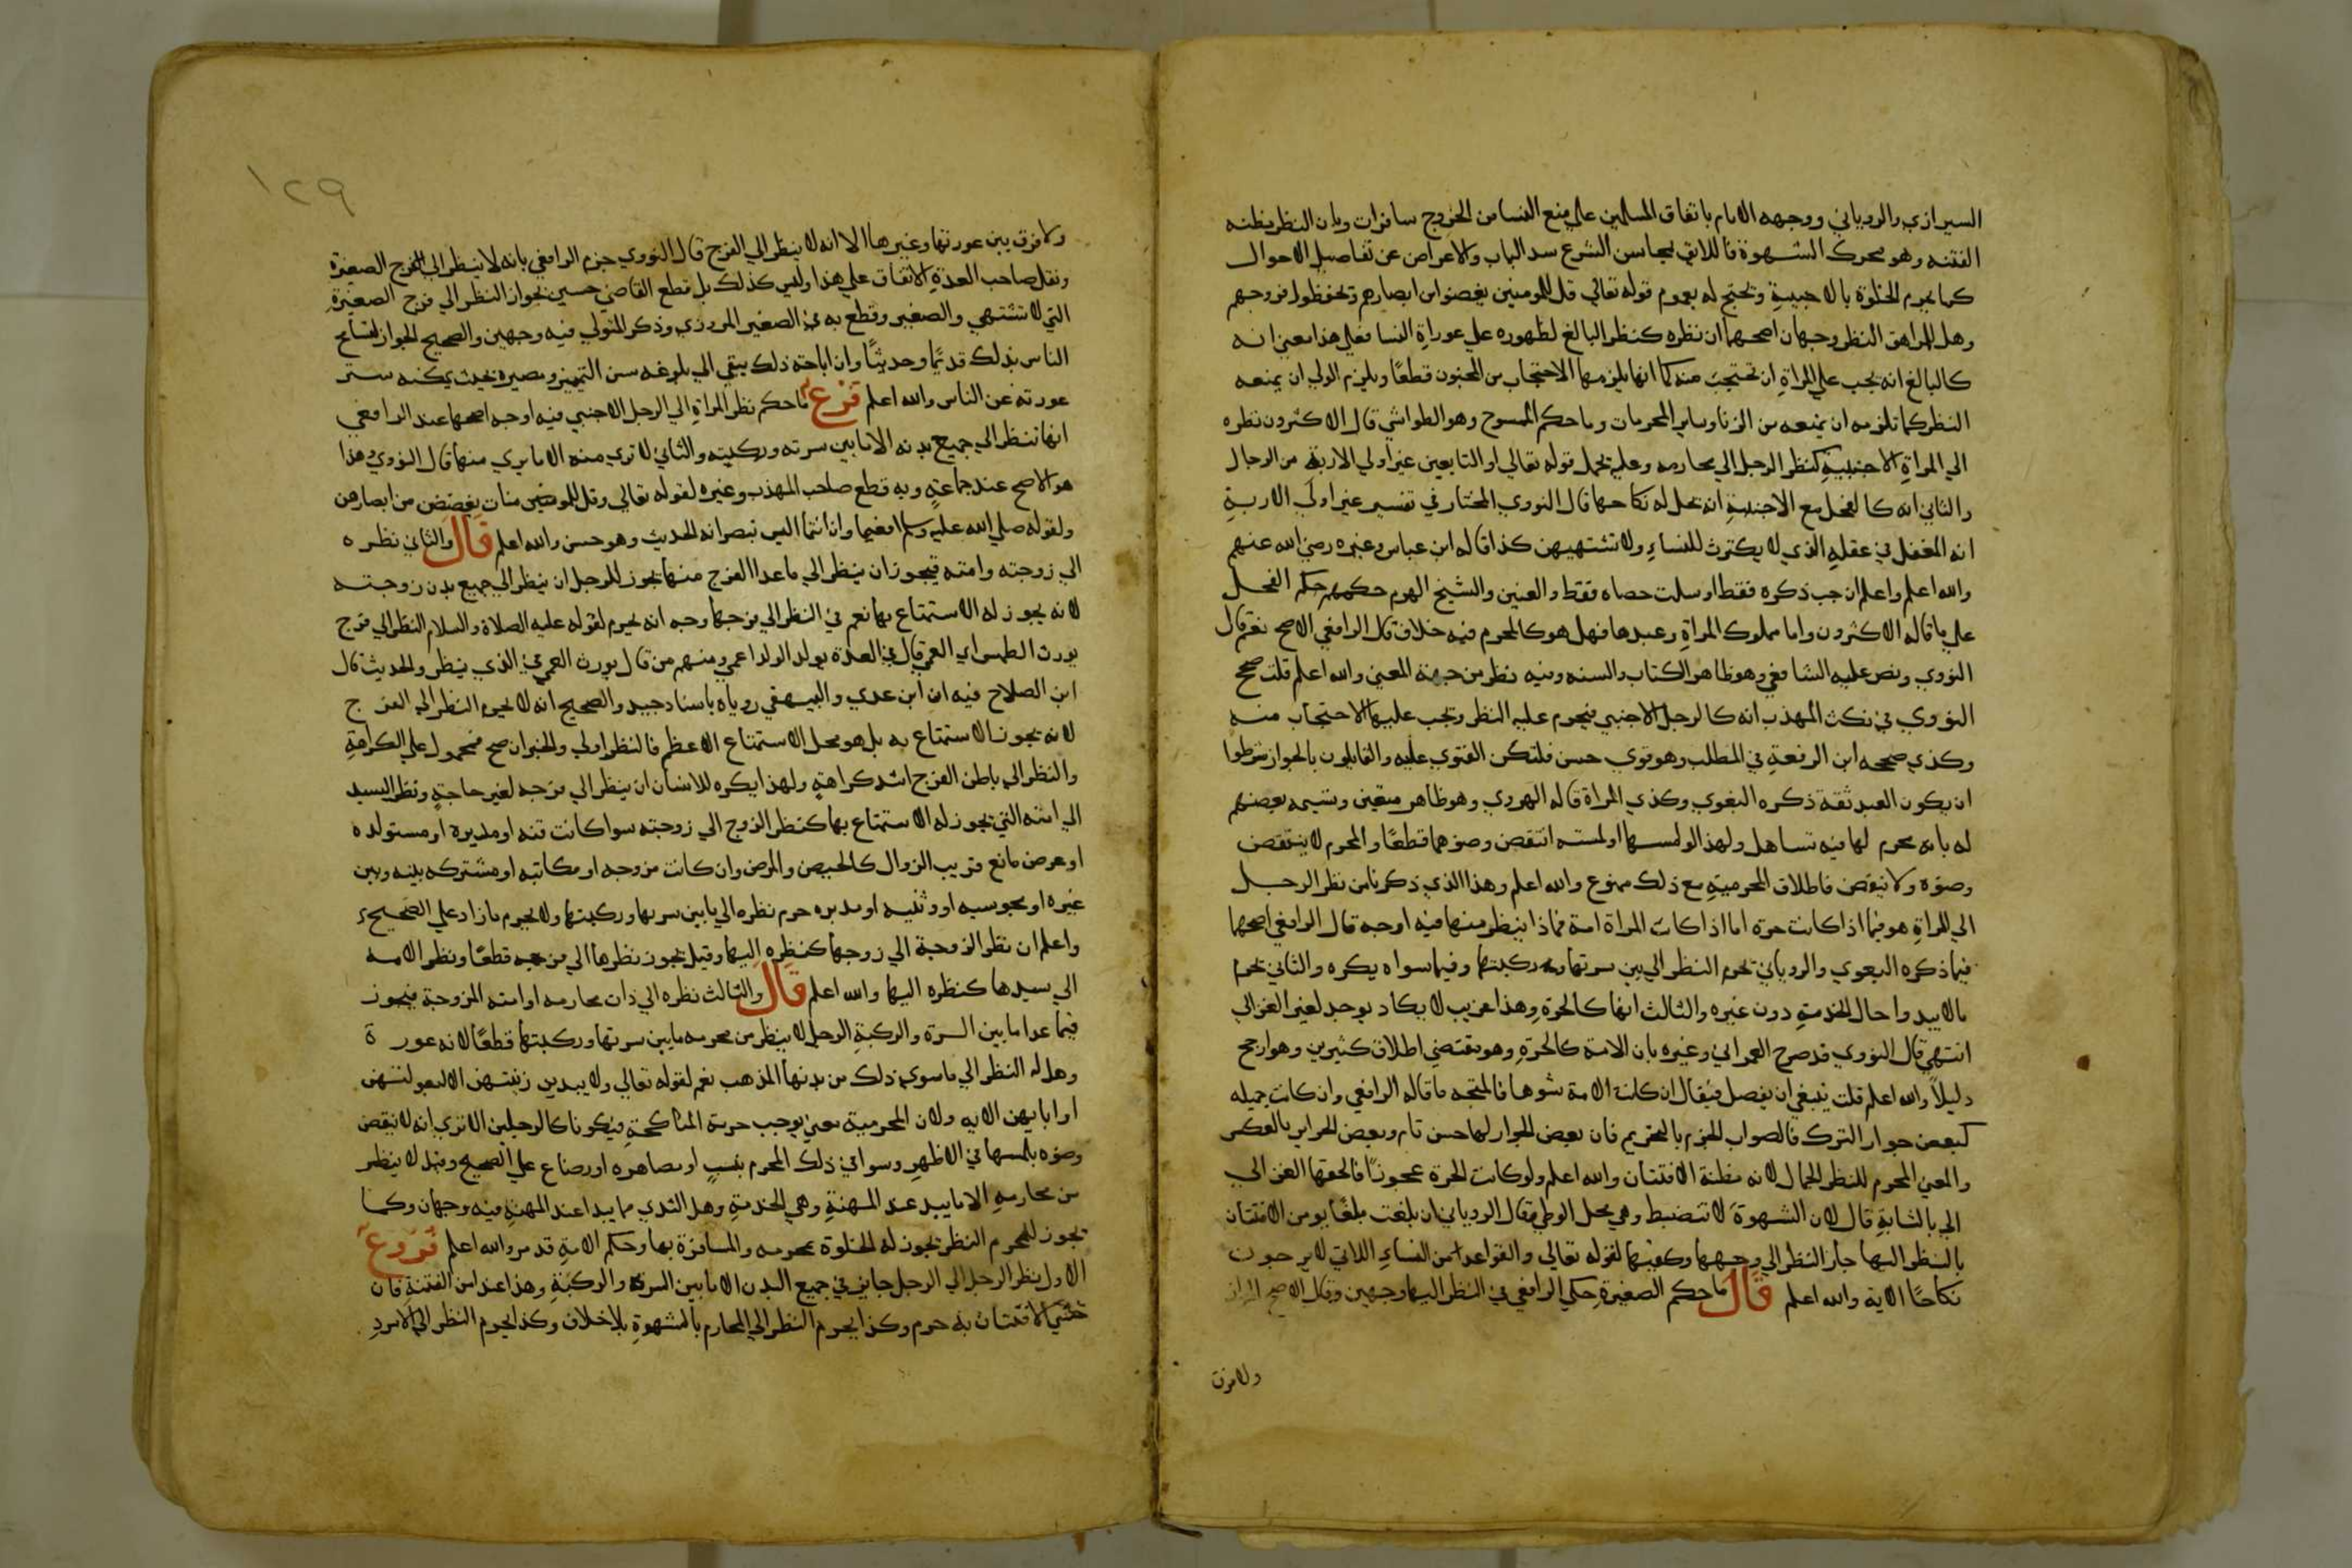 السيرازي والروياني ووجهه الامام باتفاق المسلمين علي منع النسا من الخروج سافرات وبان النظر مظنه
الفتنه وهو محرك الشهوة فاللايق بمحاسن الشرع سد الباب والاعراض عن تفاصيل الاحوال
كما يحرم الخلوة بالاجنبية وتحتج له بعموم قوله تعالي قل للمومنين يغضوا من ابصارهم وتحفظوا فروجهم
وهل للمراهق النظر وجهان اصحهما ان نظره كنظر البالغ لظهوره علي عوراة النسا فعلي هذا معني انه
كالبالغ انه يجب علي المراة ان تحتجب منه كما انها يلزمها الاحتجاب من المجنون قطعًا ويلزم الولي ان يمنعه
النظر كما تلزمه ان يمنعه من الزنا وساير المحرمات وما حكم الممسوح وهو الطواشي قال الاكثرون نظره
الي المراة الاجنبية كنظر الرجل الي محارمه وعليه يحمل قوله تعالي او التابعين غير اولي الاربة من الرجال
والثاني انه كالفحل مع الاجنبية انه يحل له نكاحها قال النووي المختار في تفسير غير اولي الاربة
انه المغفل في عقله الذي لا يكترث للنساء ولا تشتهيهن كذا قاله ابن عباس وغيره رضي الله عنهم
والله اعلم واعلم ان جب ذكره فقط او سلت خصاه فقط والعنين والشيخ الهرم حكمهم حكم الفحل
علي ما قاله الاكثرون واما مملوك المراة وعبدها فهل هو كالمحرم فيه خلاف قال الرافعي الاصح نعم قال
النووي ونص عليه الشافعي وهو ظاهر الكتاب والسنه وفيه نظر من جهة المعني والله اعلم قلت صحح
النووي في نكت المهذب انه كالرجل الاجنبي فيحرم عليه النظر وتجب عليها الاحتجاب منه
وكذي صححه ابن الرفعة في المطلب وهو قوي حسن فلتكن الفتوي عليه والقايلون بالجواز شرطوا
ان يكون العبد ثقة ذكره البغوي وكذي المراة قاله الهروي وهو ظاهر متعين وتسيمه بعضهم
له بانه محرم لها فيه تساهل ولهذا لو لمسها او لمسته انتقض وضوهما قطعًا والمحرم لا ينتقض
وضوه ولا ينقض فاطلاق المحرمية مع ذلك ممنوع والله اعلم وهذا الذي ذكرنا من نظر الرجل
الي المراة هو فيما اذا كانت حرة اما اذا كانت المراة امة فماذا ينظر منها فيه اوجه قال الرافعي اصحها
فيما ذكره البغوي والروياني تحرم النظر الي بين سرتها وركبتها وفيما سواه يكره والثاني تحرم
ما لا يبدوا حال الخدمة دون غيره والثالث انها كالحرة وهذا غريب لا يكاد يوجد لغير الغزالي
انتهي قال النووي قد صرح العمراني وغيره بان الامة كالحرة وهو مقتضي اطلاق كثيرين وهو ارجح
دليلاً والله اعلم قلت ينبغي ان يفصل فيقال ان كانت الامة شوها فالمتجه ما قاله الرافعي وان كانت جميله
كبعض جوار الترك فالصواب الجزم بالتحريم فان بعض الجوار لها حسن تام وبعض الحراير بالعكس
والمعني المحرم للنظر الجمال لانه مظنة الافتتان والله اعلم ولو كانت الحرة عجوزًا فالحقها الغزالي
الي بالشابة قال لان الشهوة لا تنضبط وهي محل الوطي وقال الروياني ان بلغت مبلغًا يومن الافتتان
بالنظر اليها جاز النظر الي وجهها وكفيها لقوله تعالي والقواعد من النساء اللاتي لا يرجون
نكاحًا الاية والله اعلم قال ما حكم الصغيرة حكي الرافعي في النظر اليها وجهين وقال الاصح الجواز
ولا فرق
١٢٩
ولا فرق بين عورتها وغيرها الا انه لا ينظر الي الفرج قال النووي جزم الرافعي بانه لا ينظر الي الفرج الصغيرة
ونقل صاحب العدة الاتفاق علي هذا وليس كذلك بل قطع القاضي حسين بجواز النظر الي فرج الصغيرة
التي لا تشتهي والصغير وقطع به في الصغير المروزي وذكر المتولي فيه وجهين والصحيح الجواز لتسامح
الناس بذلك قديمًا وحديثًا وان اباحة ذلك يبقي الي بلوغه سن التمييز ومصيره بحيث يمكنه ستر
عورته عن الناس والله اعلم فرع ما حكم نظر المراة الي الرجل الاجنبي فيه اوجه اصحها عند الرافعي
انها تنظر الي جميع بدنه الا ما بين سرته وركبته والثاني لا تري منه الا ما يري منها قال النووي وهذا
هو الاصح عند جماعة وبه قطع صاحب المهذب وغيره لقوله تعالي وقل للمومنات يغضضن من ابصارهن
ولقوله صلي الله عليه وسلم افعميا وان انتما اليس تبصرانه الحديث وهو حسن والله اعلم قال والثاني نظره
الي زوجته وامته فيجوز ان ينظر الي ما عدا الفرج منهما يجوز للرجل ان ينظر الي جميع بدن زوجته
لانه يجوز له الاستمتاع بها نعم في النظر الي فرجها وجه انه يحرم لقوله عليه الصلاة والسلام النظر الي فرج
يورث الطمس اي العمي قال في العدة يولد الولد اعمي ومنهم من قال يورث العمي في الذي ينظر والحديث قال
ابن الصلاح فيه ان ابن عدي والبيهقي روياه باسناد جيد والصحيح انه لا يحرم النظر الي الفرج
لانه يجوز الاستمتاع به بل هو محل الاستمتاع الاعظم فالنظر اولي والخبر ان صح فمحمول علي الكراهة
والنظر الي باطن الفرج اشد كراهة ولهذا يكره للانسان ان ينظر الي فرجه لغير حاجة ونظر السيد
الي امته التي يجوز له الاستمتاع بها كنظر الزوج الي زوجته سوا كانت قنه او مدبرة او مستولده
او عرض مانع قريب الزوال كالحيض والمرض وان كانت مزوجه او مكاتبه او مشتركه بينه وبين
غيره او مجوسيه او وثنيه او مدبره حرم نظره الي ما بين سرتها وركبتها ولا يحرم ما زاد علي الصحيح
واعلم ان نظر الزوجة الي زوجها كنظره اليها وقيل يجوز نظرها الي فرجه قطعًا ونظر الامه
الي سيدها كنظره اليها والله اعلم قال والثالث نظره الي ذات محارمه او امته المزوجة فيجوز
فيما عدا ما بين السرة والركبة الرجل لا ينظر من محرمه ما بين سرتها وركبتها قطعًا لانه عورة
وهل له النظر الي ما سوي ذلك من بدنها المذهب نعم لقوله تعالي ولا يبدين زينتهن الا لبعولتهن
او اباءيهن الايه ولان المحرمية معني يوجب حرمة المناكحة فيكونا كالرجلين الا تري انه لا ينقض
وضوه بلمسها في الاظهر وسوا في ذلك المحرم بنسب او مصاهره او رضاع علي الصحيح وقيل لا ينظر
من محارمه الا ما يبد عند المهنة وهي الخدمة وهل الثدي مما يبدا عند المهنة فيه وجهان وكما
تجوز للمحرم النظر يجوز له الخلوة بمحرمه والمسافرة بها وحكم الامة قد مر والله اعلم فروع
الاول نظر الرجل الي الرجل جايز في جميع البدن الا ما بين السرة والركبة وهذا عند امن الفتنة فان
خشي الافتتان به حرم وكذا يحرم النظر الي المحارم بالشهوة بلا خلاف وكذا يحرم النظر الي الامرد